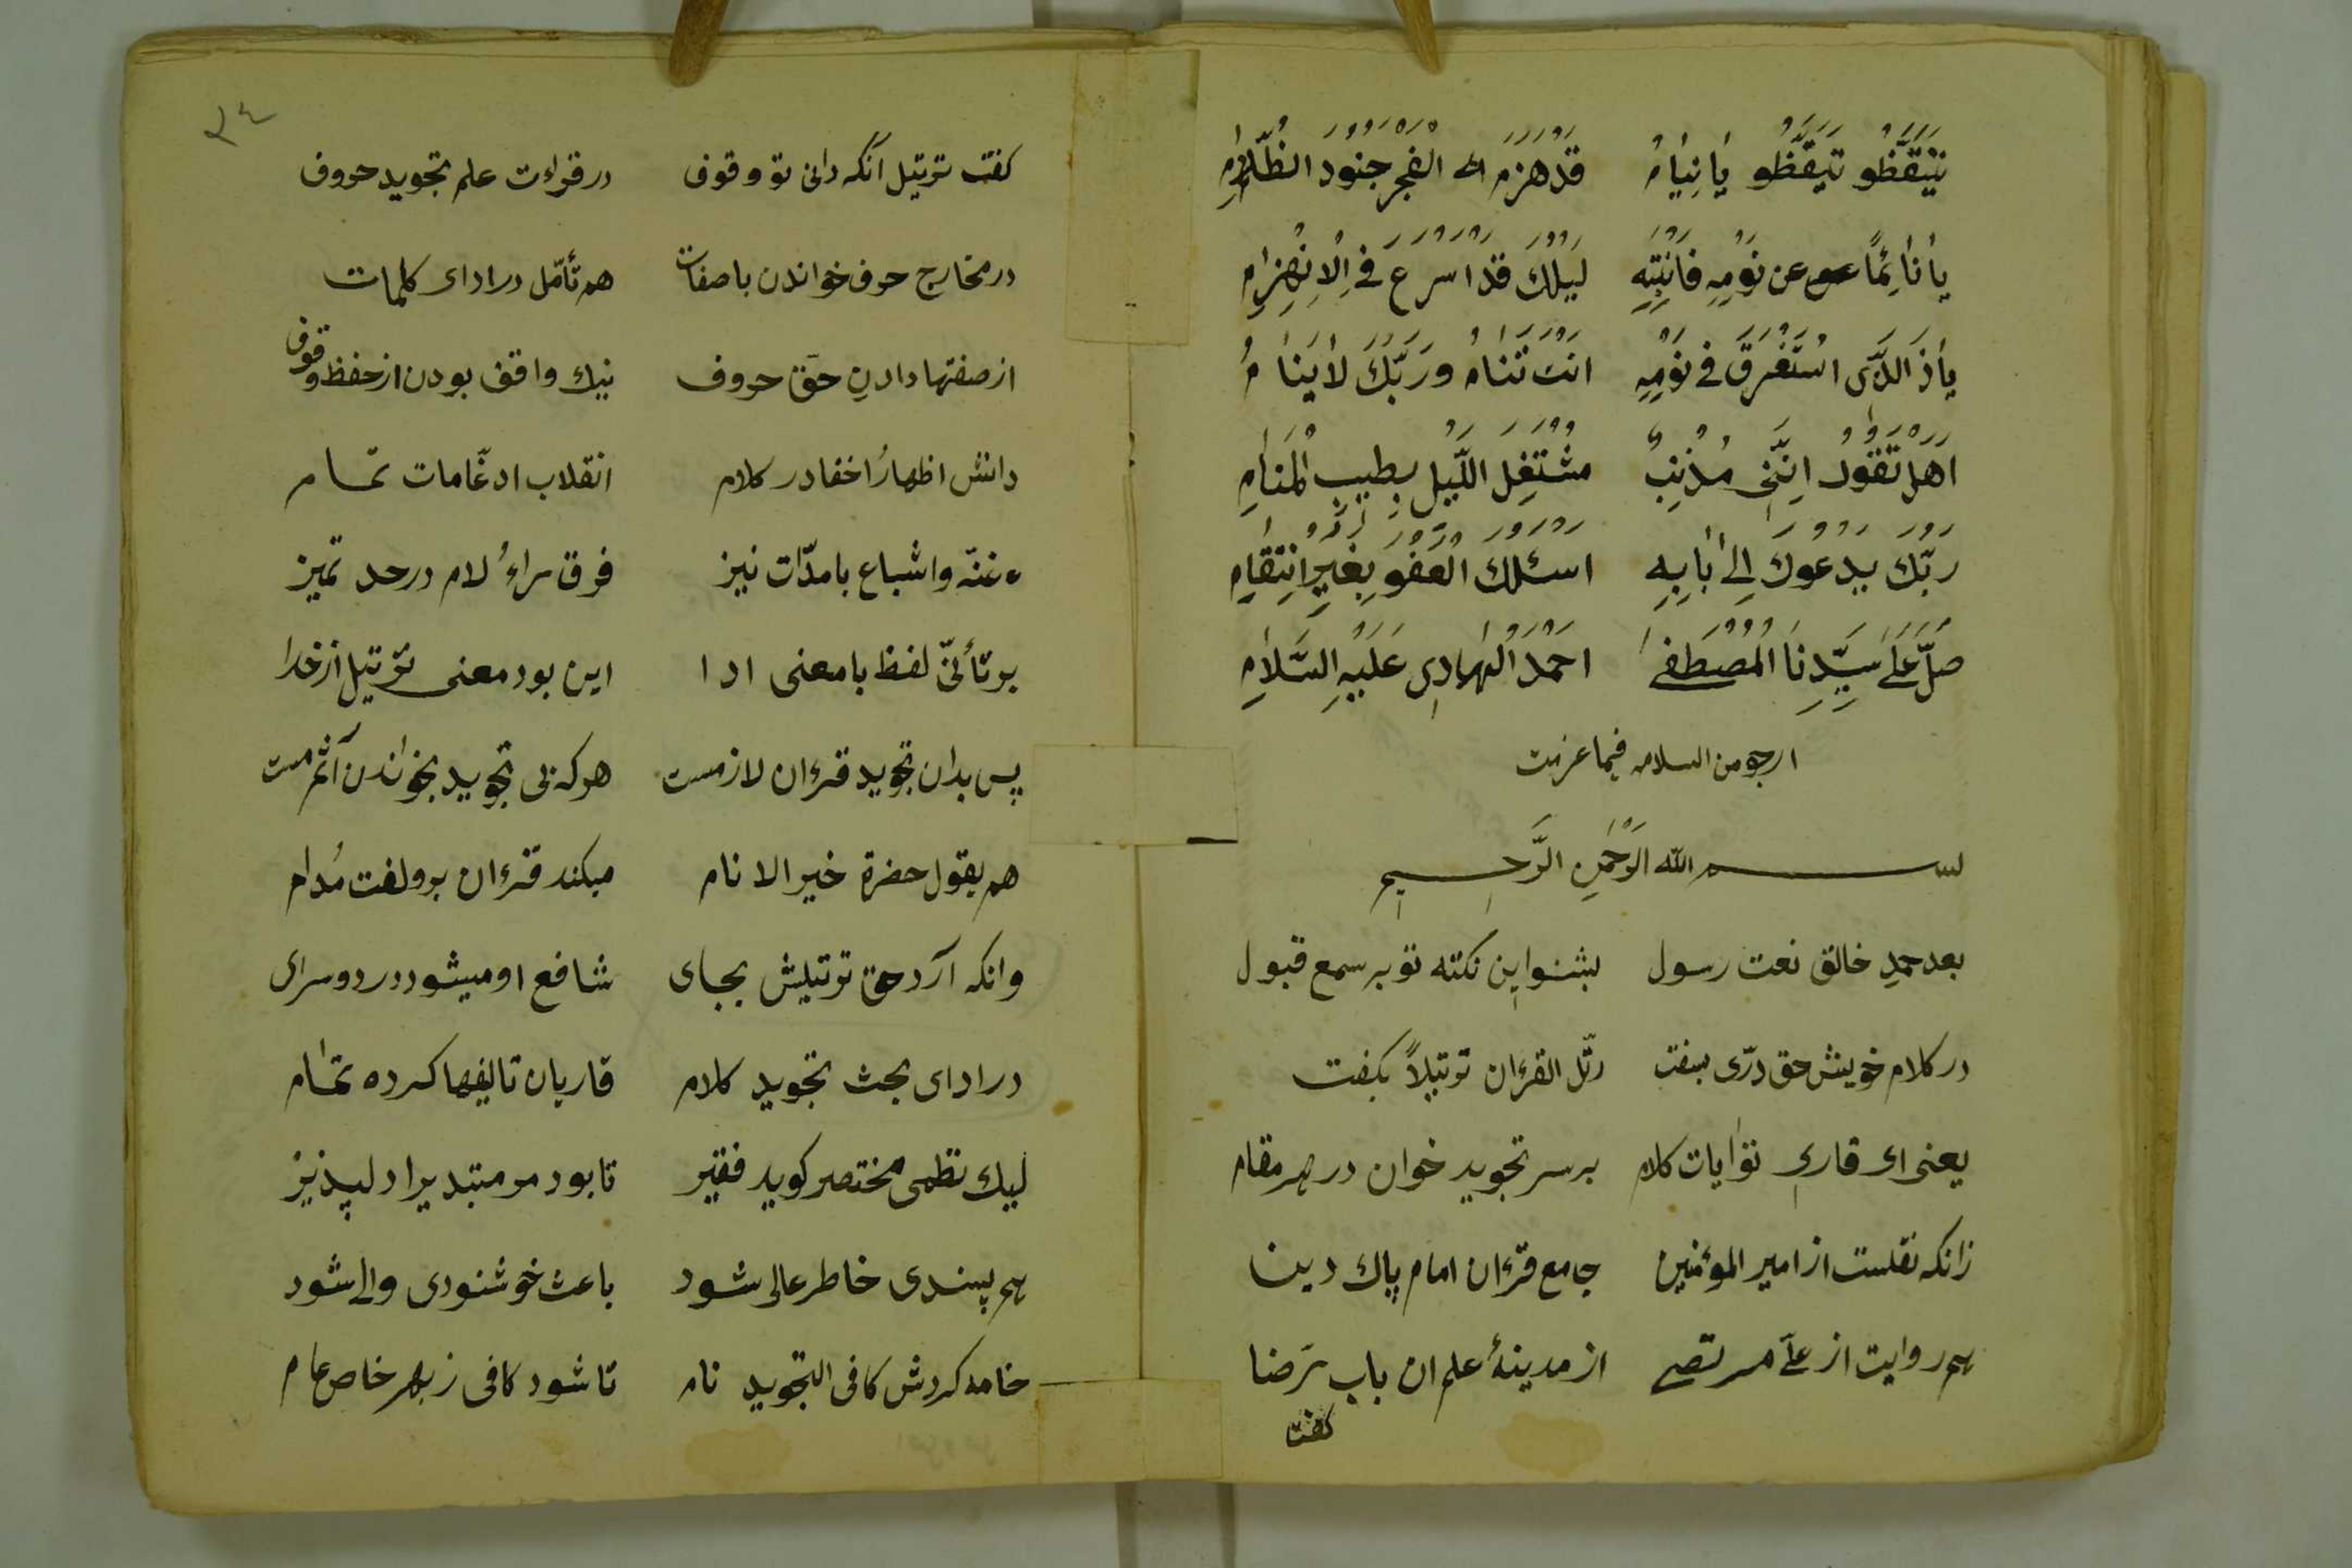 تَیَقَّظُو تَیَقَّظُو یَا نِیَامُ قَدْ هَزَمَ الْفَجْرُ جُنُودَ الظَّلَامِ
یَا نَائِمًا عن نَوْمِهِ فَانْتَبِهِ لَیْلُكَ قَدْ اَسْرَعَ فِی الْاِنْهِزَامِ
یَا ذَ الَّذِی اسْتَغْرَقَ فِی نَوْمِهِ اَنْتَ تَنَامُ وَرَبُّكَ لَا یَنَامُ
اَهَلْ تَقُولُ اِنَّنِی مُذْنِبٌ مُشْتَغِلَ اللَّیْلِ بِطِیبِ الْمَنَامِ
رَبُّكَ یَدْعُوكَ اِلٰی بَابِهِ اَسْئَلُكَ الْعَفْوَ بِغَیْرِ انْتِقَامِ
صَلِّ عَلٰی سَیِّدِنَا الْمُصْطَفٰی اَحْمَدُ الْهَادِی عَلَیْهِ السَّلَامِ
ارجو من السلامه فیما عزمت
بسم الله الرَّحْمٰنِ الرَّحیم
بعد حمدِ خالق نعت رسول بشنو این نکته تو بر سمع قبول
در کلام خویش حق درّی بسفت رتّل القرءان ترتیلاً بکفت
یعنی ای قاری تو ایات کلام بر سر تجوید خوان در هر مقام
زانکه نقلست از امیر المؤمنین جامع قرءان امام پاك دین
هم روایت از علی مرتضی از مدینهٔ علم ان باب رضا
کفت
٣٤
کفت ترتیل آنکه دانی تو وقوف در قراءت علم تجوید حروف
در مخارج حرف خواندن با صفات هم تأمّل در ادای کلمات
از صفتها دادنِ حقّ حروف نیك واقف بودن از حفظ وقوف
دانش اظهارُ اخفا در کلام انقلاب ادغامات تمام
غنّه واشباع با مدّات نیز فرق راءُ لام در حد تمیز
بر تأنّی لفظ با معنی ادا این بود معنی ترتیل از خدا
پس بدان تجوید قرءان لازمست هر که بی تجوید بخواندن آثمست
هم بقول حضرة خیر الانام میکند قرءان برو لعنت مُدام
وانکه آرد حق ترتیلش بجای شافع او میشود در دو سرای
در ادای بحث تجوید کلام قاریان تالیفها کرده تمام
لیك نظمی مختصر کوید فقیر تا بود مر مبتدیرا دلپذیر
هم پسندی خاطر عالی شود باعث خوشنودی والی شود
خامه کردش کافی التجوید نام تا شود کافی ز بهر خاص عام